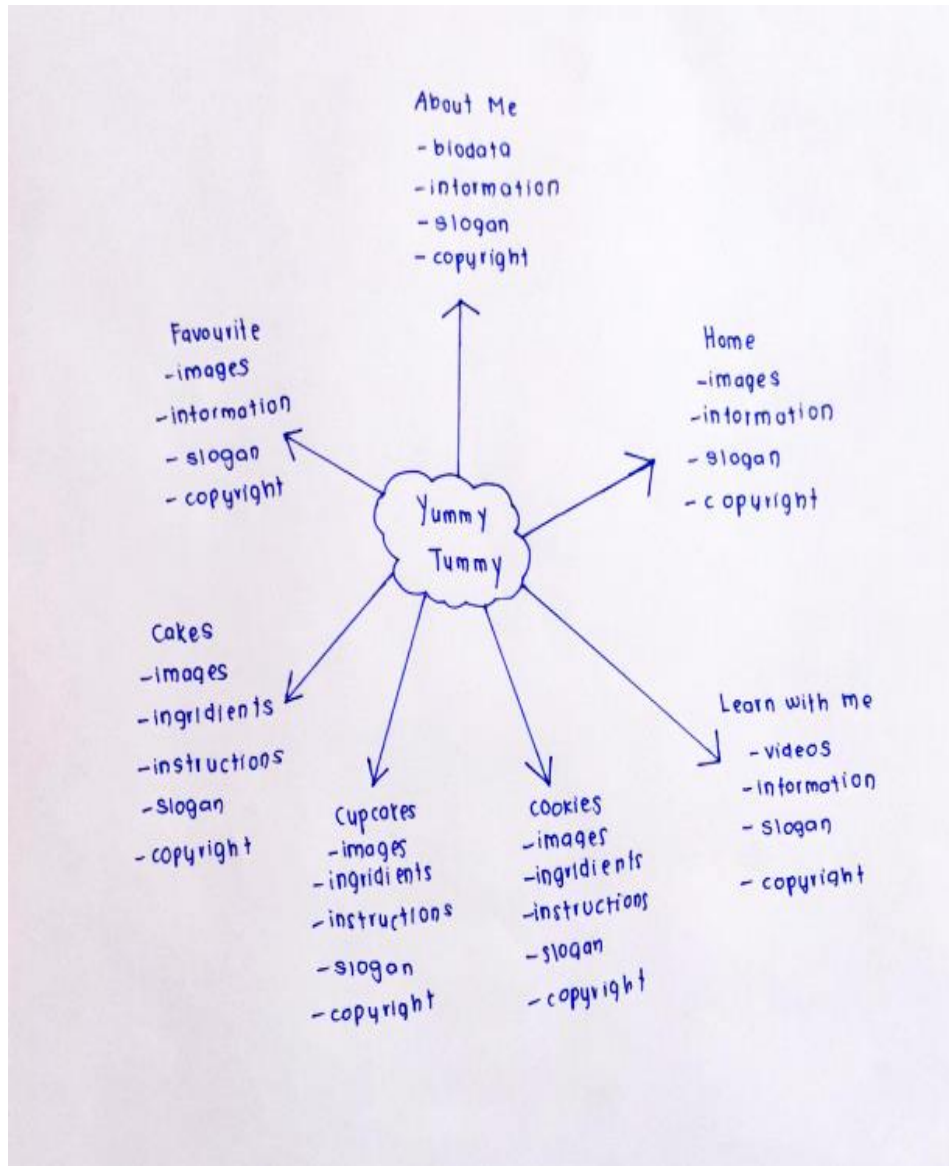 About Me
- biodata
- information
- slogan
- copyright
Favourite
- images
- information
- slogan
- copyright
Home
- images
- information
- slogan
- copyright
Yummy
Tummy
Cakes
- images
- ingridients
- instructions
- slogan
- copyright
Cupcakes
- images
- ingridients
- instructions
- slogan
- copyright
cookies
- images
- ingridients
- instructions
- slogan
- copyright
Learn with me
- videos
- information
- slogan
- copyright